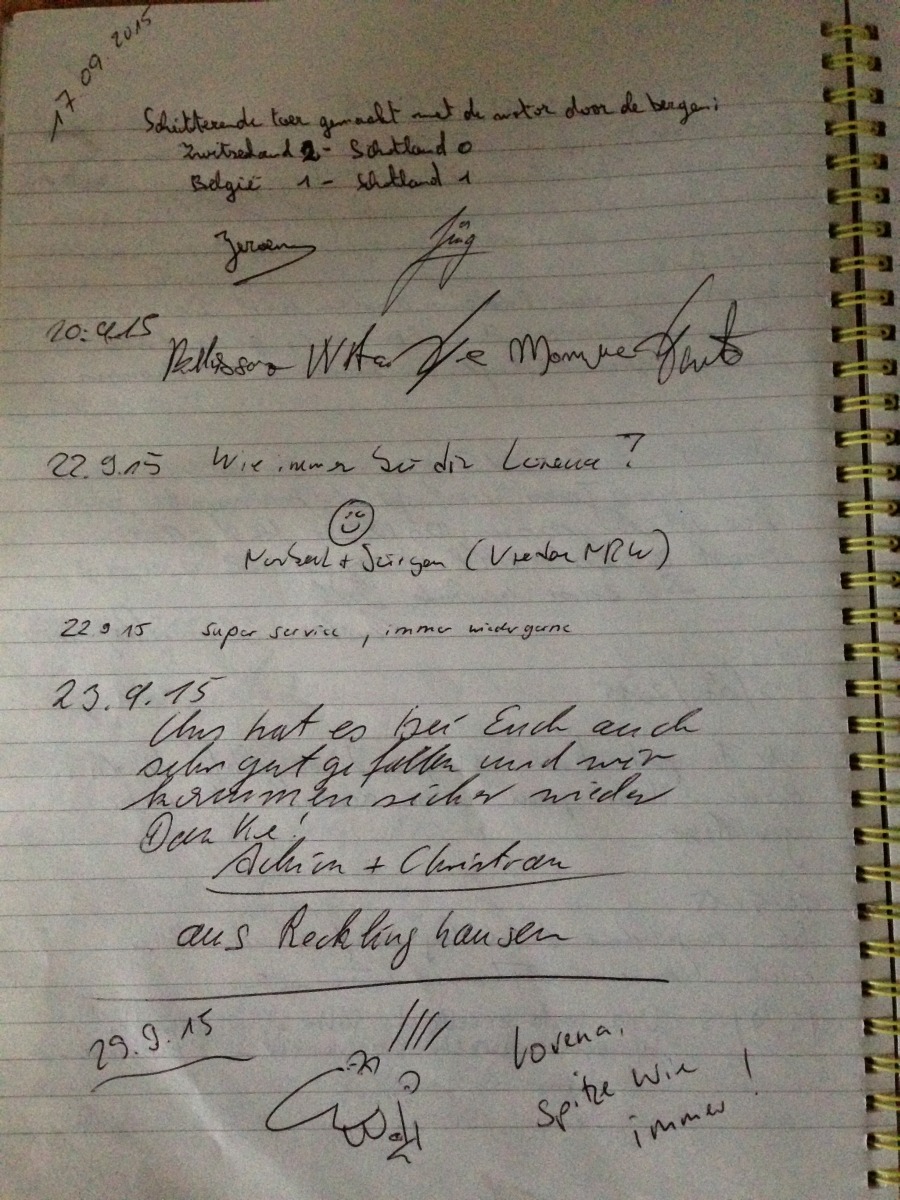 17 09 2015
Schitterende toer gemaakt met de motor door de bergen:
Zwitserland 2 - Schotland 0
België 1 - Schotland 1
Jeroen Jürg
20.9.15
22.9.15 Wie immer bei dir Lorena?
Norbert + Jürgen (Vreden NRW)
22 9 15 super service, immer wieder gerne
23.9.15
Uns hat es bei Euch auch
sehr gut gefallen und wir
kommen sicher wieder
Danke!
Achim + Christian
aus Recklinghausen
29.9.15
Lorena,
Spitze wie
immer!